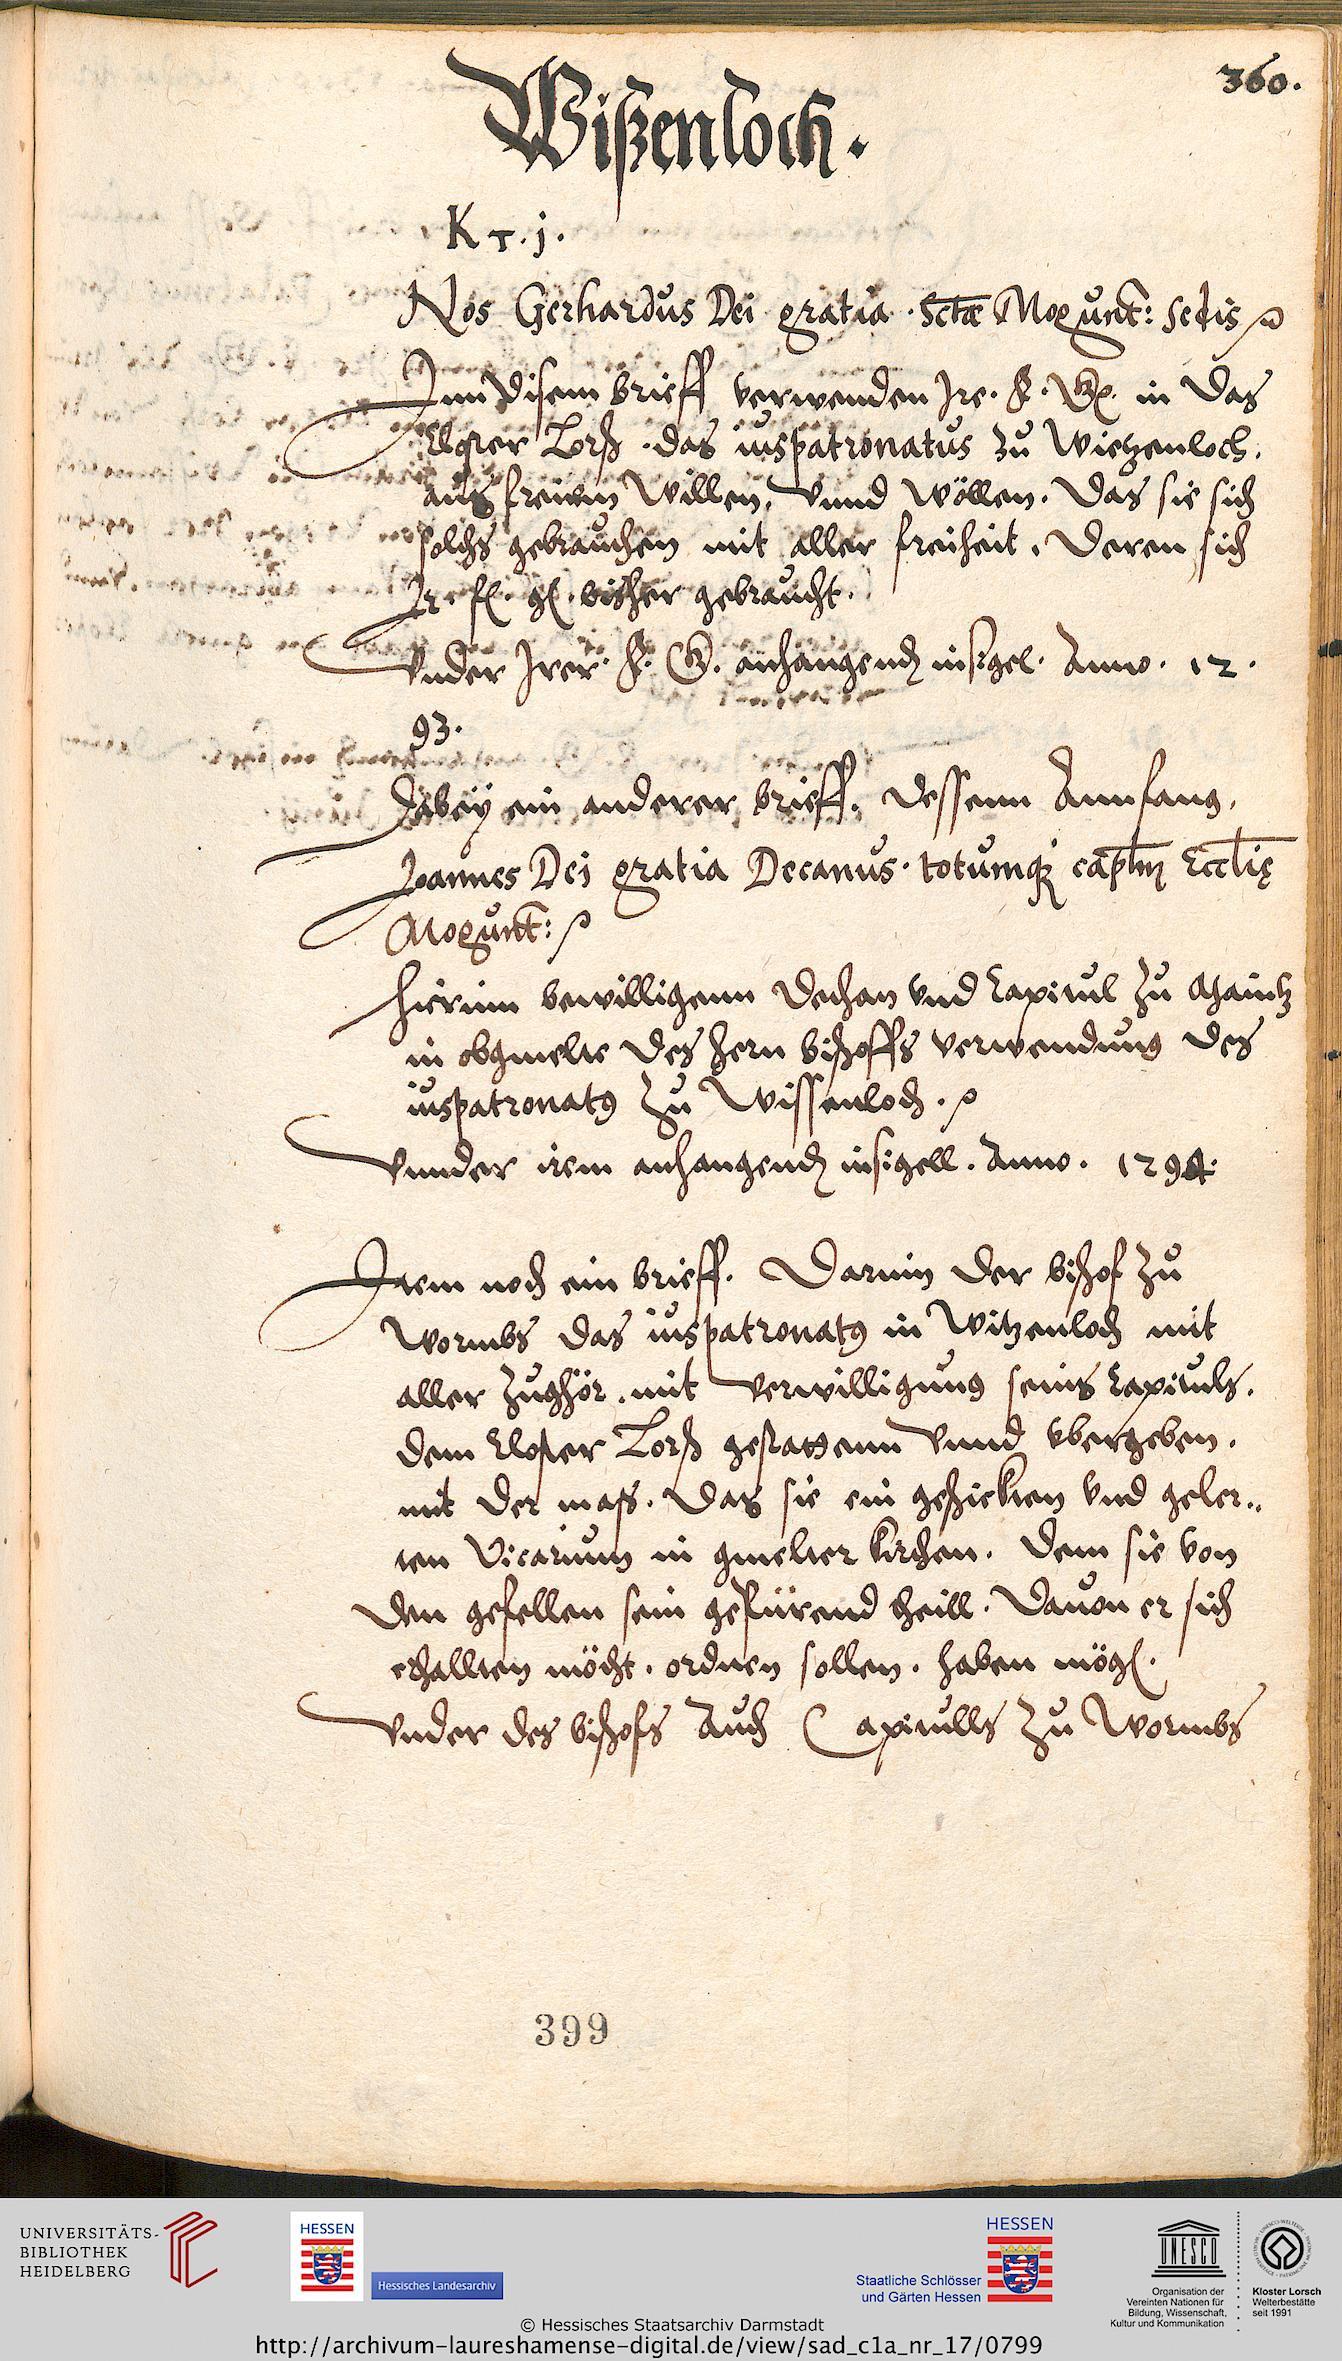 360.
Wißenloch.
K T. j.
Nos Gerhardus Dei gratia. Sctae Mogunt: sedis
Inn disem brieff verwenden Ire. F. G. in das
Closter Lorß. das iuspatronatus zu Wietzenloch.
aus freiem Willen, Vnnd wöllen. das sie sich
solchs gebrauchen mit aller freiheit, deren sich
Ir. f. g. bisher gebraucht.
Vnder Irer. F. G. anhangend insigel. Anno. 12.
93.
Dabey ein anderer brieff. dessenn Annfang.
Joannes Dei gratia Decanus. totumq caplm Ecclię
Mogunt:
Hierinn bewilligenn dechan vnd Capitul zu Maintz
in obgmelte des hern bischoffs verwendung des
iuspatronatus zu Wissenloch.
Vnnder irem anhangend insigell. Anno. 1294.
Item noch ein brieff. Darinn der bischof zu
Wormbs das iuspatronatus in Witzenloch mit
aller zughör. mit Verwilligung seins Capituls.
dem Closter Lorß gestattenn Vnnd vbergeben.
mit der mass. das sie ein geschickten vnd geler..
ten Vicarium in gmelter kirchen. dem sie von
den gefellen sein gepürend theill. dauon er sich
erhallten möcht. ordnen sollen. haben mög.
Vnder des bischofs Auch Capitulls zu Wormbs
399
UNIVERSITÄTS-
BIBLIOTHEK
HEIDELBERG
HESSEN
Hessisches Landesarchiv
HESSEN
Staatliche Schlösser
und Gärten Hessen
UNESCO
Organisation der
Vereinten Nationen für
Bildung, Wissenschaft,
Kultur und Kommunikation
Kloster Lorsch
Welterbestätte
seit 1991
© Hessisches Staatsarchiv Darmstadt
http://archivum-laureshamense-digital.de/view/sad_c1a_nr_17/0799